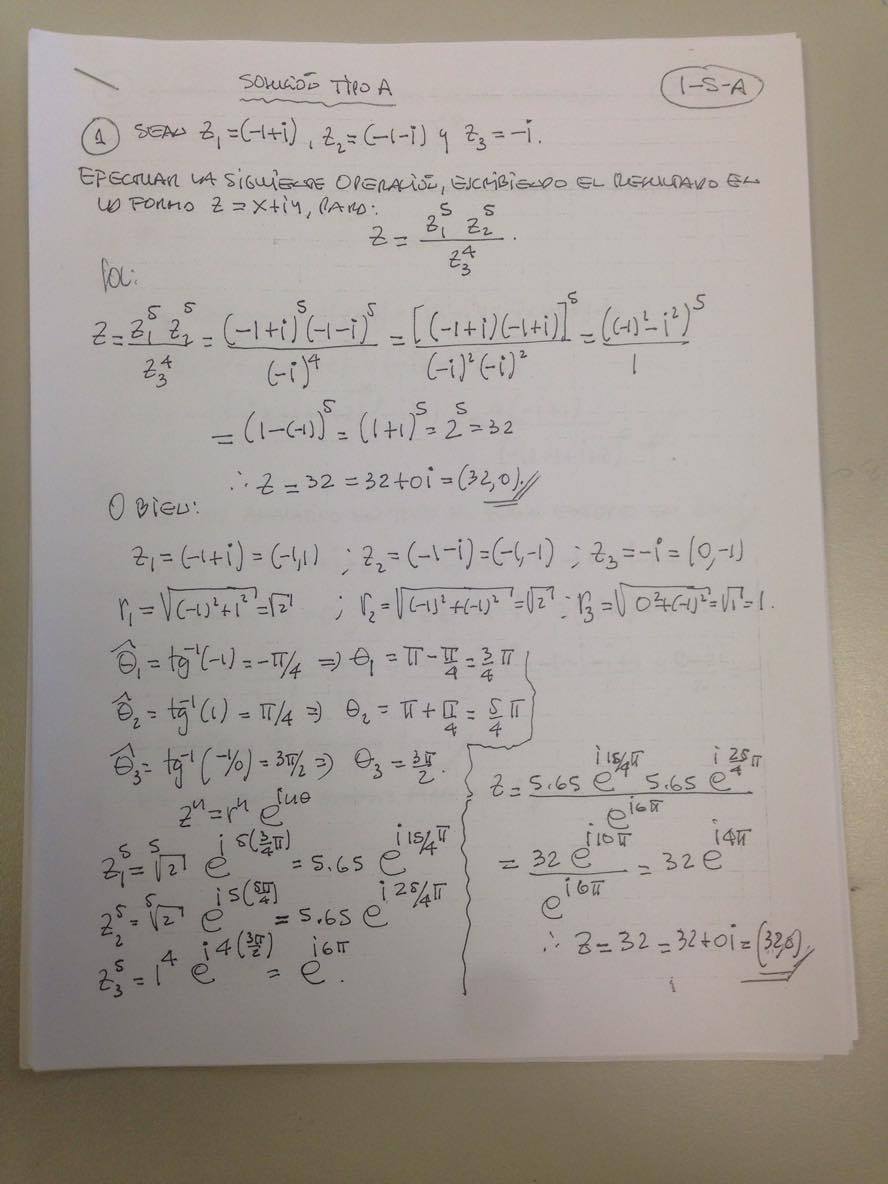 SOLUCIÓN TIPO A
1-S-A
① SEAN Z₁=(-1+i), Z₂=(-1-i) y Z₃=-i.
EFECTUAR LA SIGUIENTE OPERACIÓN, ESCRIBIENDO EL RESULTADO EN
LA FORMA Z=x+iy, PARA:
Z = Z₁⁵ Z₂⁵ / Z₃⁴.
Sol:
Z = Z₁⁵ Z₂⁵ / Z₃⁴ = (-1+i)⁵(-1-i)⁵ / (-i)⁴ = [(-1+i)(-1+i)]⁵ / (-i)²(-i)² = ((-1)²-i²)⁵ / 1
= (1-(-1))⁵ = (1+1)⁵ = 2⁵ = 32
∴ Z = 32 = 32+0i = (32,0).
O BIEN:
Z₁=(-1+i)=(-1,1) ; Z₂=(-1-i)=(-1,-1) ; Z₃=-i=(0,-1)
r₁=√((-1)²+1²)=√2 ; r₂=√((-1)²+(-1)²)=√2 ; r₃=√(0²+(-1)²)=√1=1.
θ̂₁ = tg⁻¹(-1) = -π/4 ⇒ θ₁ = π-π/4 = 3/4 π
θ̂₂ = tg⁻¹(1) = π/4 ⇒ θ₂ = π+π/4 = 5/4 π
θ̂₃ = tg⁻¹(-1/0) = 3π/2 ⇒ θ₃ = 3π/2.
Zⁿ = rⁿ e^(inθ)
Z₁⁵ = ⁵√2 e^(i5(3/4 π)) = 5.65 e^(i15/4 π)
Z₂⁵ = ⁵√2 e^(i5(5π/4)) = 5.65 e^(i25/4 π)
Z₃⁵ = 1⁴ e^(i4(3π/2)) = e^(i6π).
Z = 5.65 e^(i15/4 π) 5.65 e^(i25/4 π) / e^(i6π)
= 32 e^(i10π) / e^(i6π) = 32 e^(i4π)
∴ Z = 32 = 32+0i = (32,0).